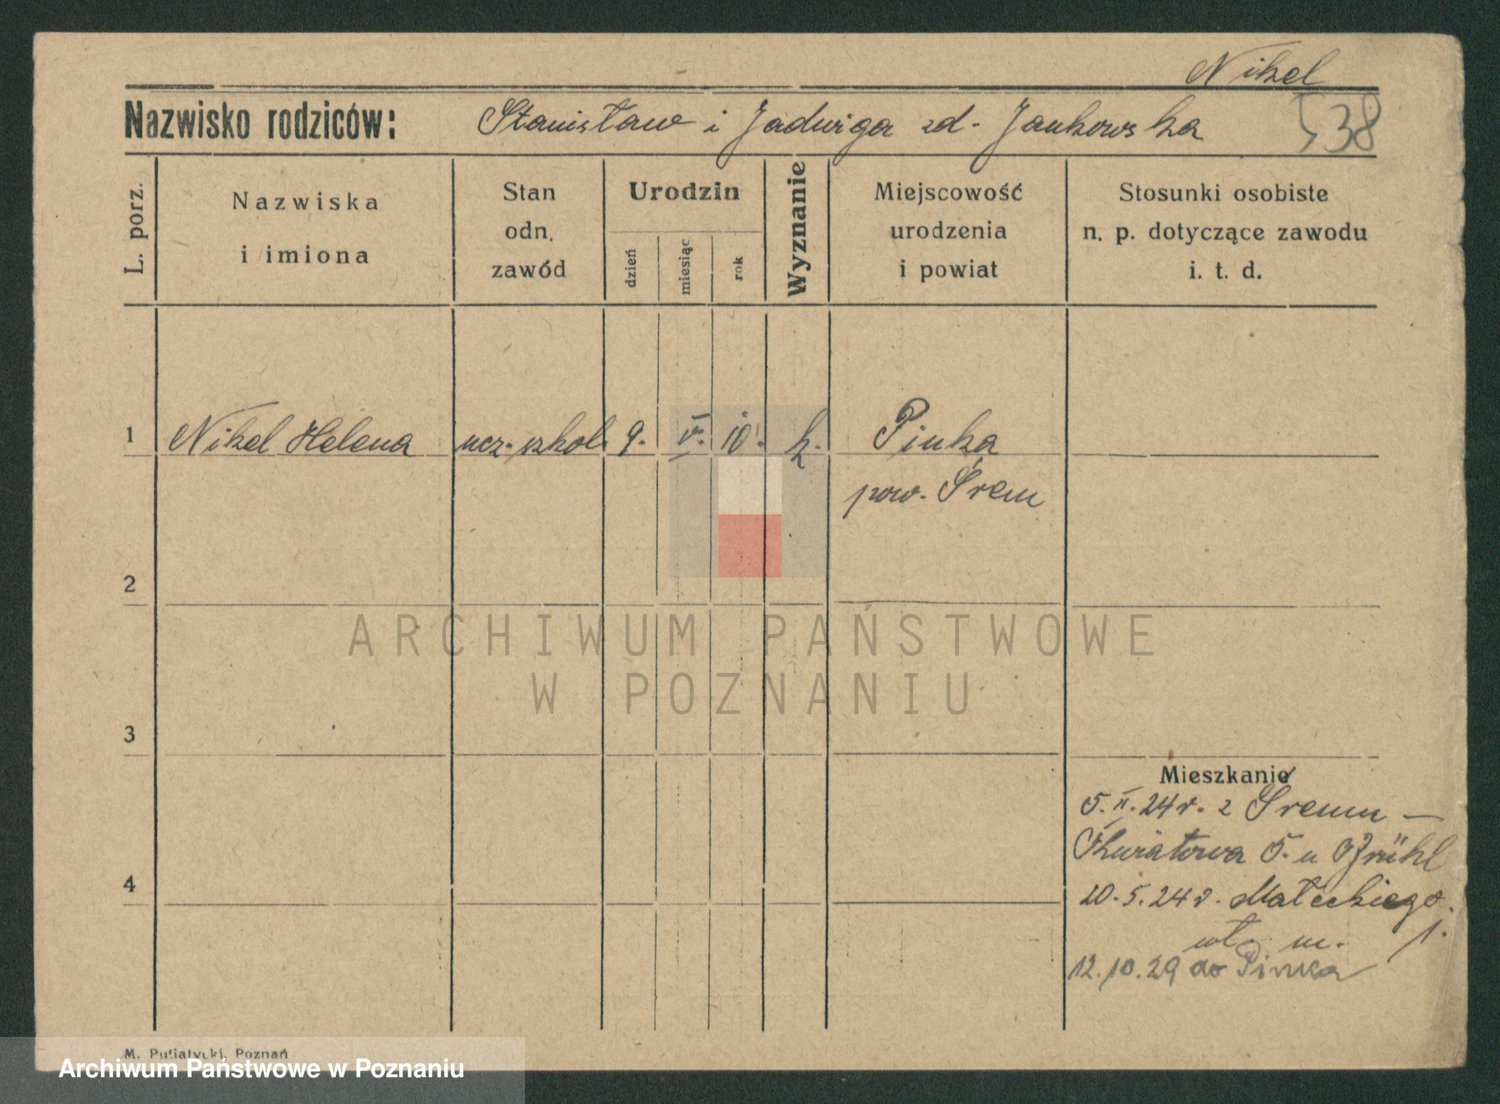 Nikel
Nazwisko rodziców: Stanisław i Jadwiga zd. Jankowska
538
L. porz.
Nazwiska
i imiona
Stan
odn.
zawód
Urodzin
dzień
miesiąc
rok
Wyznanie
Miejscowość
urodzenia
i powiat
Stosunki osobiste
n. p. dotyczące zawodu
i. t. d.
1 Nikel Helena ucz. szkol. 9. V. 10. k. Pinka
pow. Śrem
2
ARCHIWUM PAŃSTWOWE
W POZNANIU
3
Mieszkanie
5. II. 24 r. z Śremu —
Kwiatowa 5. u Brühl
4
20. 5. 24 r. Małeckiego
wł. m. 1.
12.10.29 do Pinka
M. Putiatycki, Poznań
Archiwum Państwowe w Poznaniu